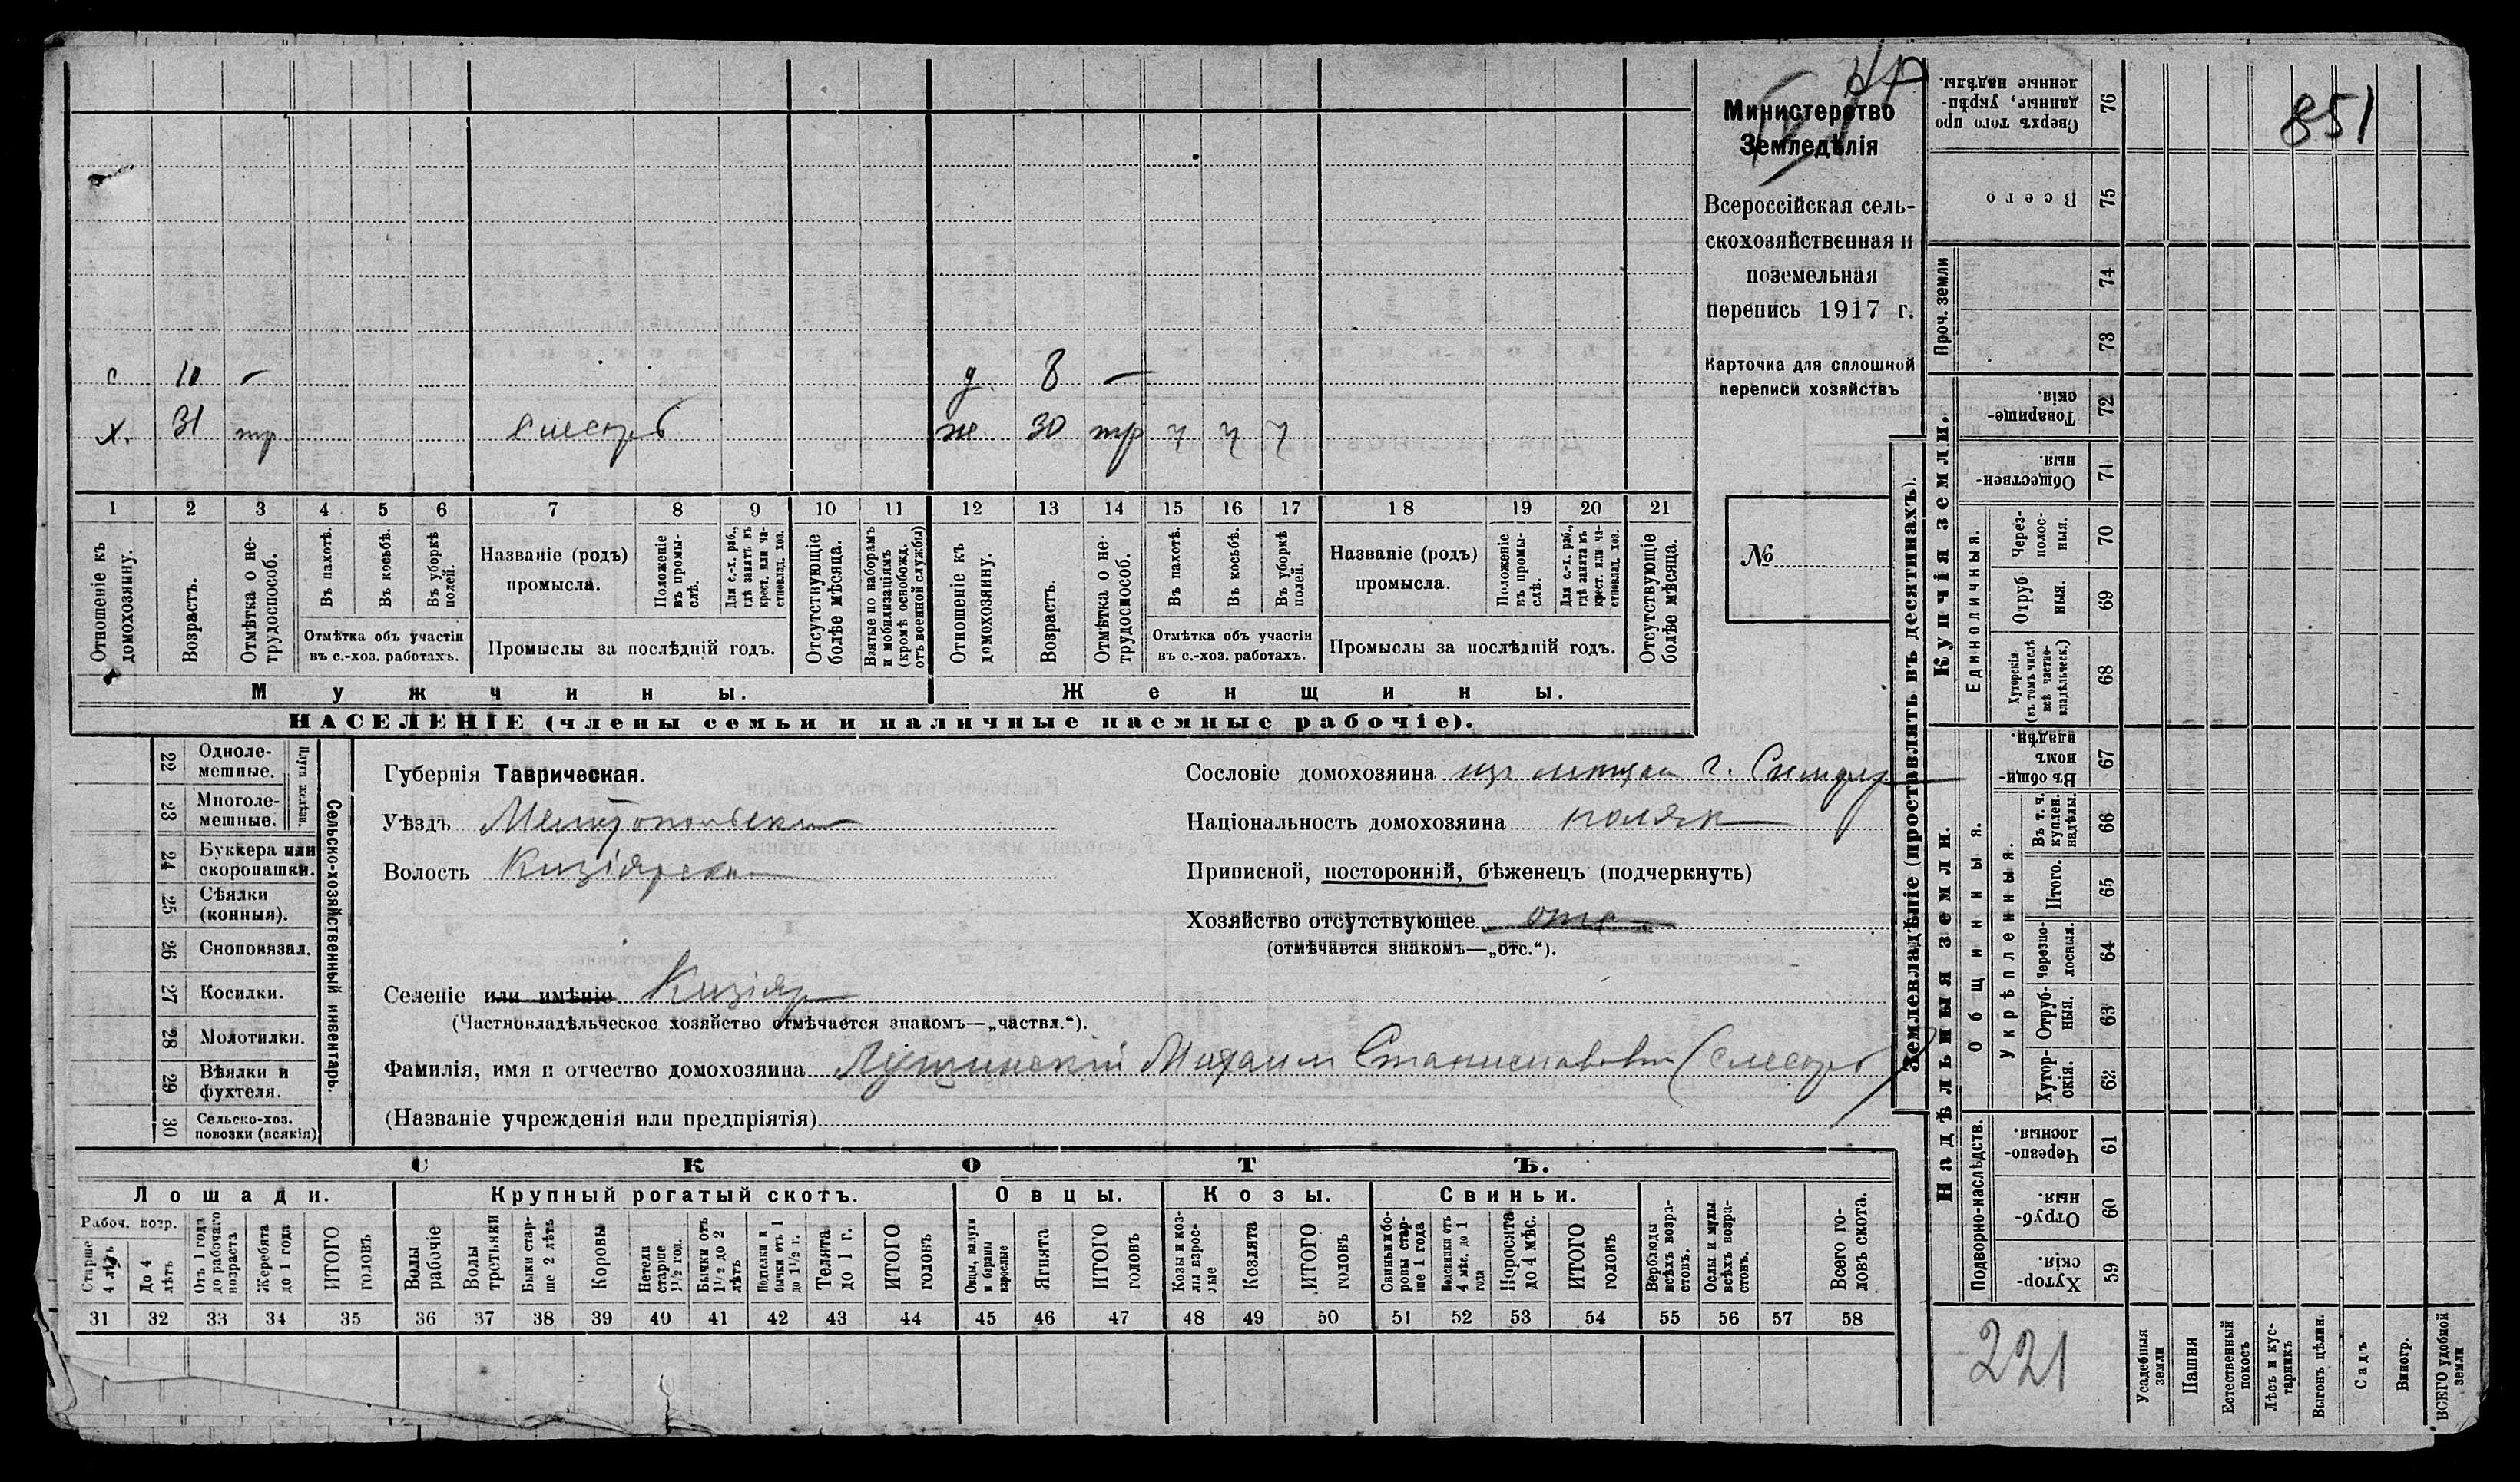 Министерство
Земледѣлія
Всероссійская сель-
скохозяйственная и
поземельная
перепись 1917 г.
Карточка для сплошной
переписи хозяйствъ
№
851
с 10 — д. 8 —
х. 31 тр слесарь ж 30 тр ч ч ч
1 2 3 4 5 6 7 8 9 10 11 12 13 14 15 16 17 18 19 20 21
Отношеніе къ домохозяину.
Возрастъ.
Отмѣтка о не-трудоспособ.
Въ пахотѣ.
Въ косьбѣ.
Въ уборкѣ полей.
Отмѣтка объ участіи
въ с.-хоз. работахъ.
Названіе (родъ)
промысла.
Положеніе въ промы-слѣ.
Для с.-х. раб., гдѣ занятъ въ крест. или ча-стновлад. хоз.
Промыслы за послѣдній годъ.
Отсутствующіе болѣе мѣсяца.
Взятые по наборамъ и мобилизаціямъ (кромѣ освобожд. отъ военной службы)
Отношеніе къ домохозяину.
Возрастъ.
Отмѣтка о не-трудоспособ.
Въ пахотѣ.
Въ косьбѣ.
Въ уборкѣ полей.
Отмѣтка объ участіи
въ с.-хоз. работахъ.
Названіе (родъ)
промысла.
Положеніе въ промы-слѣ.
Для с.-х. раб., гдѣ занята въ крест. или ча-стновлад. хоз.
Промыслы за послѣдній годъ.
Отсутствующіе болѣе мѣсяца.
Мужчины. Женщины.
НАСЕЛЕНІЕ (члены семьи и наличные наемные рабочіе).
22 Одноле-мешные.
23 Многоле-мешные.
Плуги желѣзн.
24 Буккера или скоропашки.
25 Сѣялки (конныя).
26 Сноповязал.
27 Косилки.
28 Молотилки.
29 Вѣялки и фухтеля.
30 Сельско-хоз. повозки (всякія)
Сельско-хозяйственный инвентарь.
Губернія Таврическая.
Уѣздъ Мелитопольскій
Волость Кизіярская
Селеніе или имѣніе Кизіяр
(Частновладѣльческое хозяйство отмѣчается знакомъ—„частвл.“).
Сословіе домохозяина из мещан г. Симфер
Національность домохозяина поляк
Приписной, посторонній, бѣженецъ (подчеркнуть)
Хозяйство отсутствующее отс
(отмѣчается знакомъ—„отс.“).
Фамилія, имя и отчество домохозяина Лущинскій Михаил Станиславович (слесарь)
(Названіе учрежденія или предпріятія)
СКОТЪ.
Лошади. Крупный рогатый скотъ. Овцы. Козы. Свиньи.
Рабоч. возр.
Старше 4 лѣтъ
До 4 лѣтъ
Отъ 1 года до рабочаго возраста
Жеребята до 1 года
ИТОГО головъ
Волы рабочіе
Волы третьяки
Быки стар-ше 2 лѣтъ
Коровы
Нетели старше 1½ год.
Бычки отъ 1½ до 2 лѣтъ
Подтелки и бычки отъ 1 до 1½ г.
Телята до 1 г.
ИТОГО головъ
Овцы, валухи и бараны взрослые
Ягнята
ИТОГО головъ
Козы и коз-лы взрос-лые
Козлята
ИТОГО головъ
Свиньи и бо-ровы стар-ше 1 года
Подсвинки отъ 4 мѣс. до 1 года
Поросята до 4 мѣс.
ИТОГО головъ
Верблюды всѣхъ возра-стовъ.
Ослы и мулы всѣхъ возра-стовъ.
Всего го-ловъ скота.
31 32 33 34 35 36 37 38 39 40 41 42 43 44 45 46 47 48 49 50 51 52 53 54 55 56 57 58
Землевладѣніе (проставлять въ десятинахъ).
Купчія земли.
Надѣльныя земли.
76 Сверхъ того про-данные, укрѣп-ленные надѣлы.
75 Всего
Проч. земли
74
73
72 Товарище-скія.
71 Обществен-ныя.
Единоличныя.
70 Через-полос-ныя.
69 Отруб-ныя.
68 Хуторскія (въ томъ числѣ всѣ частно-владѣльческ.)
Общинныя.
67 Въ общин-номъ владѣн.
Укрѣпленныя.
66 Въ т. ч. куплен. надѣлы.
65 Итого.
64 Черезпо-лосныя.
63 Отруб-ныя.
62 Хутор-скія.
Подворно-наслѣдств.
61 Черезпо-лосныя.
60 Отруб-ныя.
59 Хутор-скія.
221
Усадебныя земли
Пашня
Естественный покосъ
Лѣсъ и кус-тарникъ
Выгонъ цѣлин.
Садъ
Виногр.
ВСЕГО удобной земли